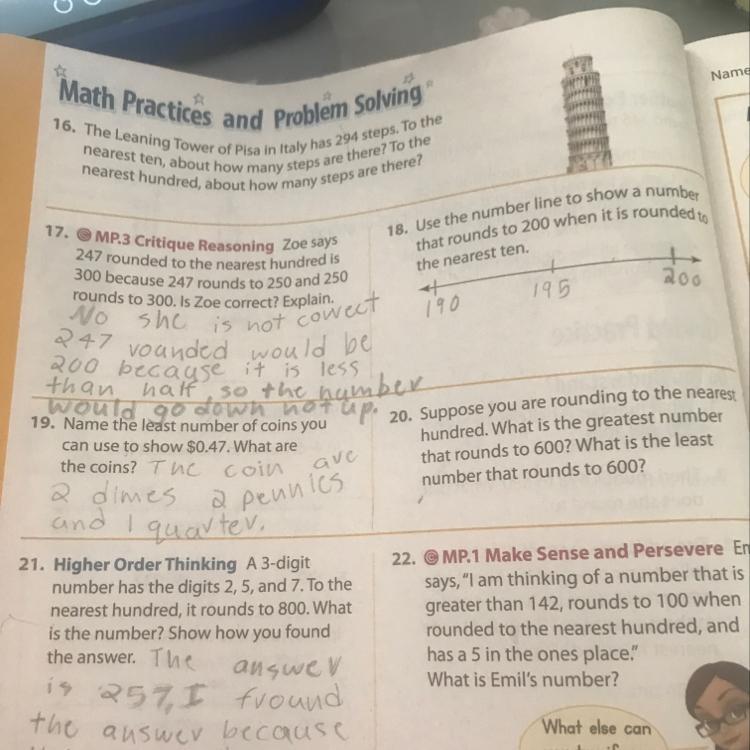 Math Practices and Problem Solving
Name
16. The Leaning Tower of Pisa in Italy has 294 steps. To the
nearest ten, about how many steps are there? To the
nearest hundred, about how many steps are there?
17. MP.3 Critique Reasoning Zoe says
247 rounded to the nearest hundred is
300 because 247 rounds to 250 and 250
rounds to 300. Is Zoe correct? Explain.
No she is not correct
247 rounded would be
200 because it is less
than half so the number
would go down not up.
18. Use the number line to show a number
that rounds to 200 when it is rounded to
the nearest ten.
190 195 200
19. Name the least number of coins you
can use to show $0.47. What are
the coins? The coin are
2 dimes 2 pennies
and 1 quarter.
20. Suppose you are rounding to the nearest
hundred. What is the greatest number
that rounds to 600? What is the least
number that rounds to 600?
21. Higher Order Thinking A 3-digit
number has the digits 2, 5, and 7. To the
nearest hundred, it rounds to 800. What
is the number? Show how you found
the answer. The answer
is 257, I fround
the answer because
22. MP.1 Make Sense and Persevere
says, "I am thinking of a number that is
greater than 142, rounds to 100 when
rounded to the nearest hundred, and
has a 5 in the ones place."
What is Emil's number?
What else can